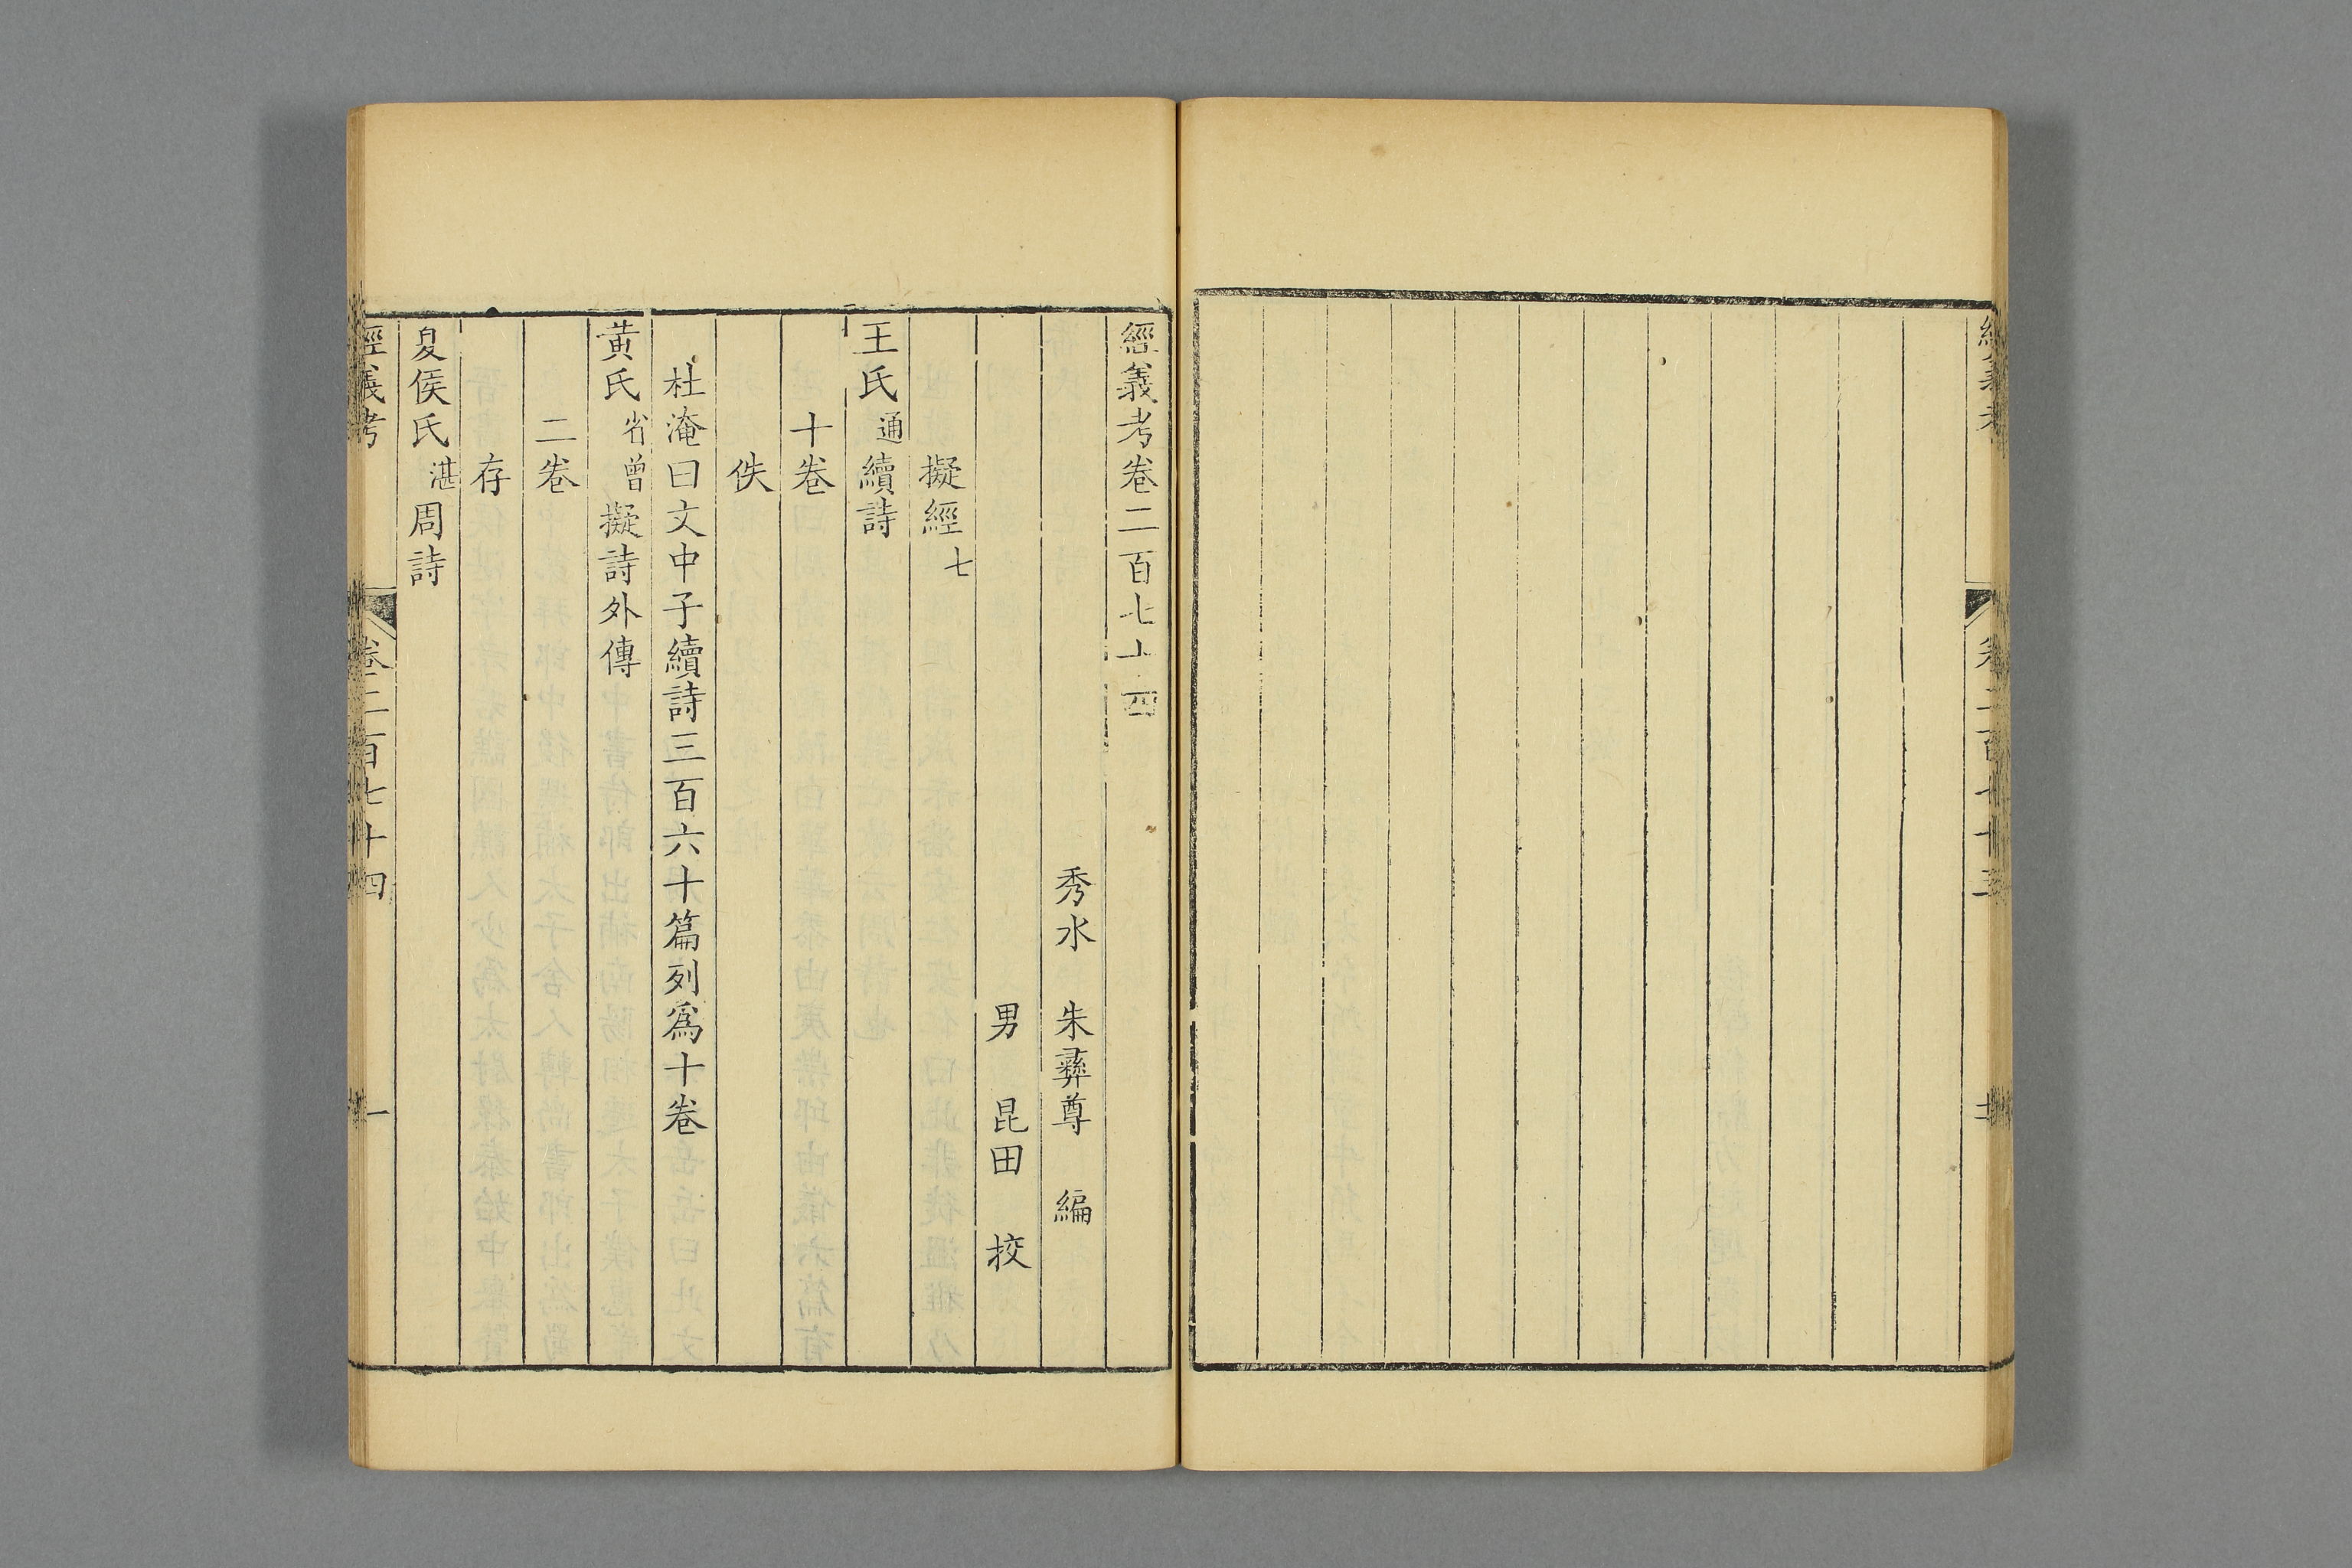 經義考卷二百七十四
秀水 朱彝尊 編
男 昆田 挍
擬經七
王氏通續詩
十卷
佚
杜淹曰文中子續詩三百六十篇列爲十卷
黃氏省曾擬詩外傳
二卷
存
夏侯氏湛周詩
經義考 卷二百七十四 一